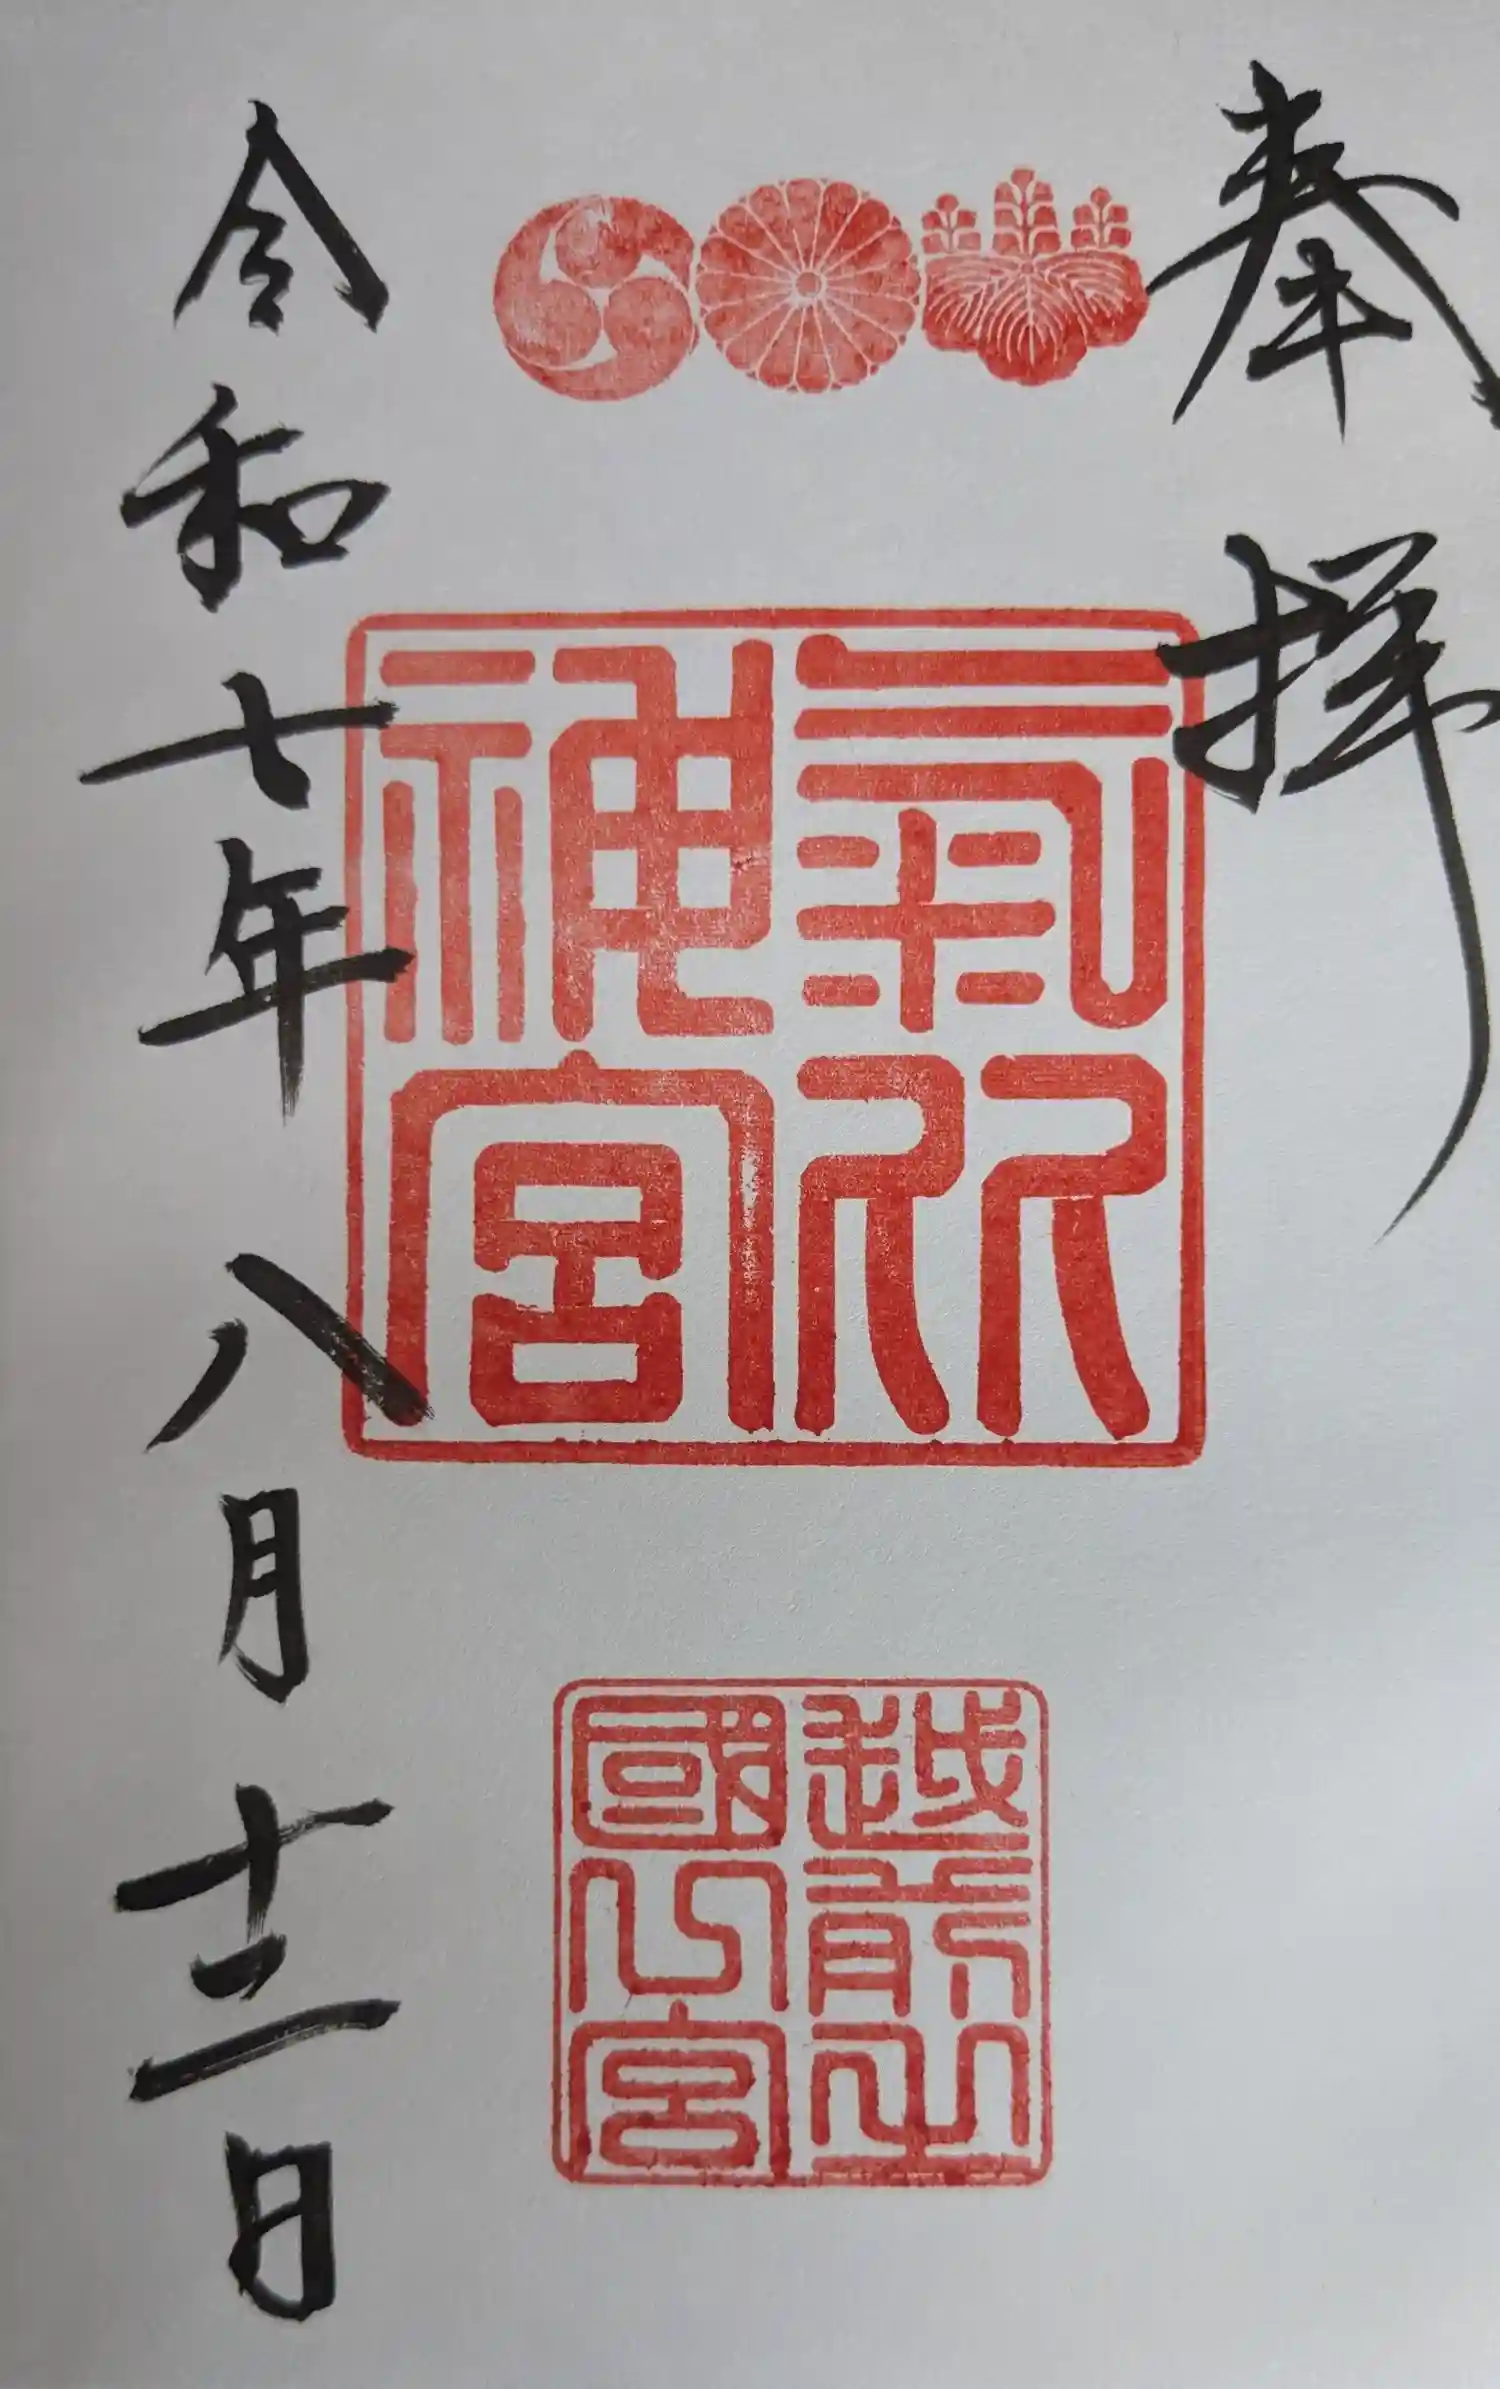 奉拝
氣比神宮
越前之國宮
令和七年八月十三日